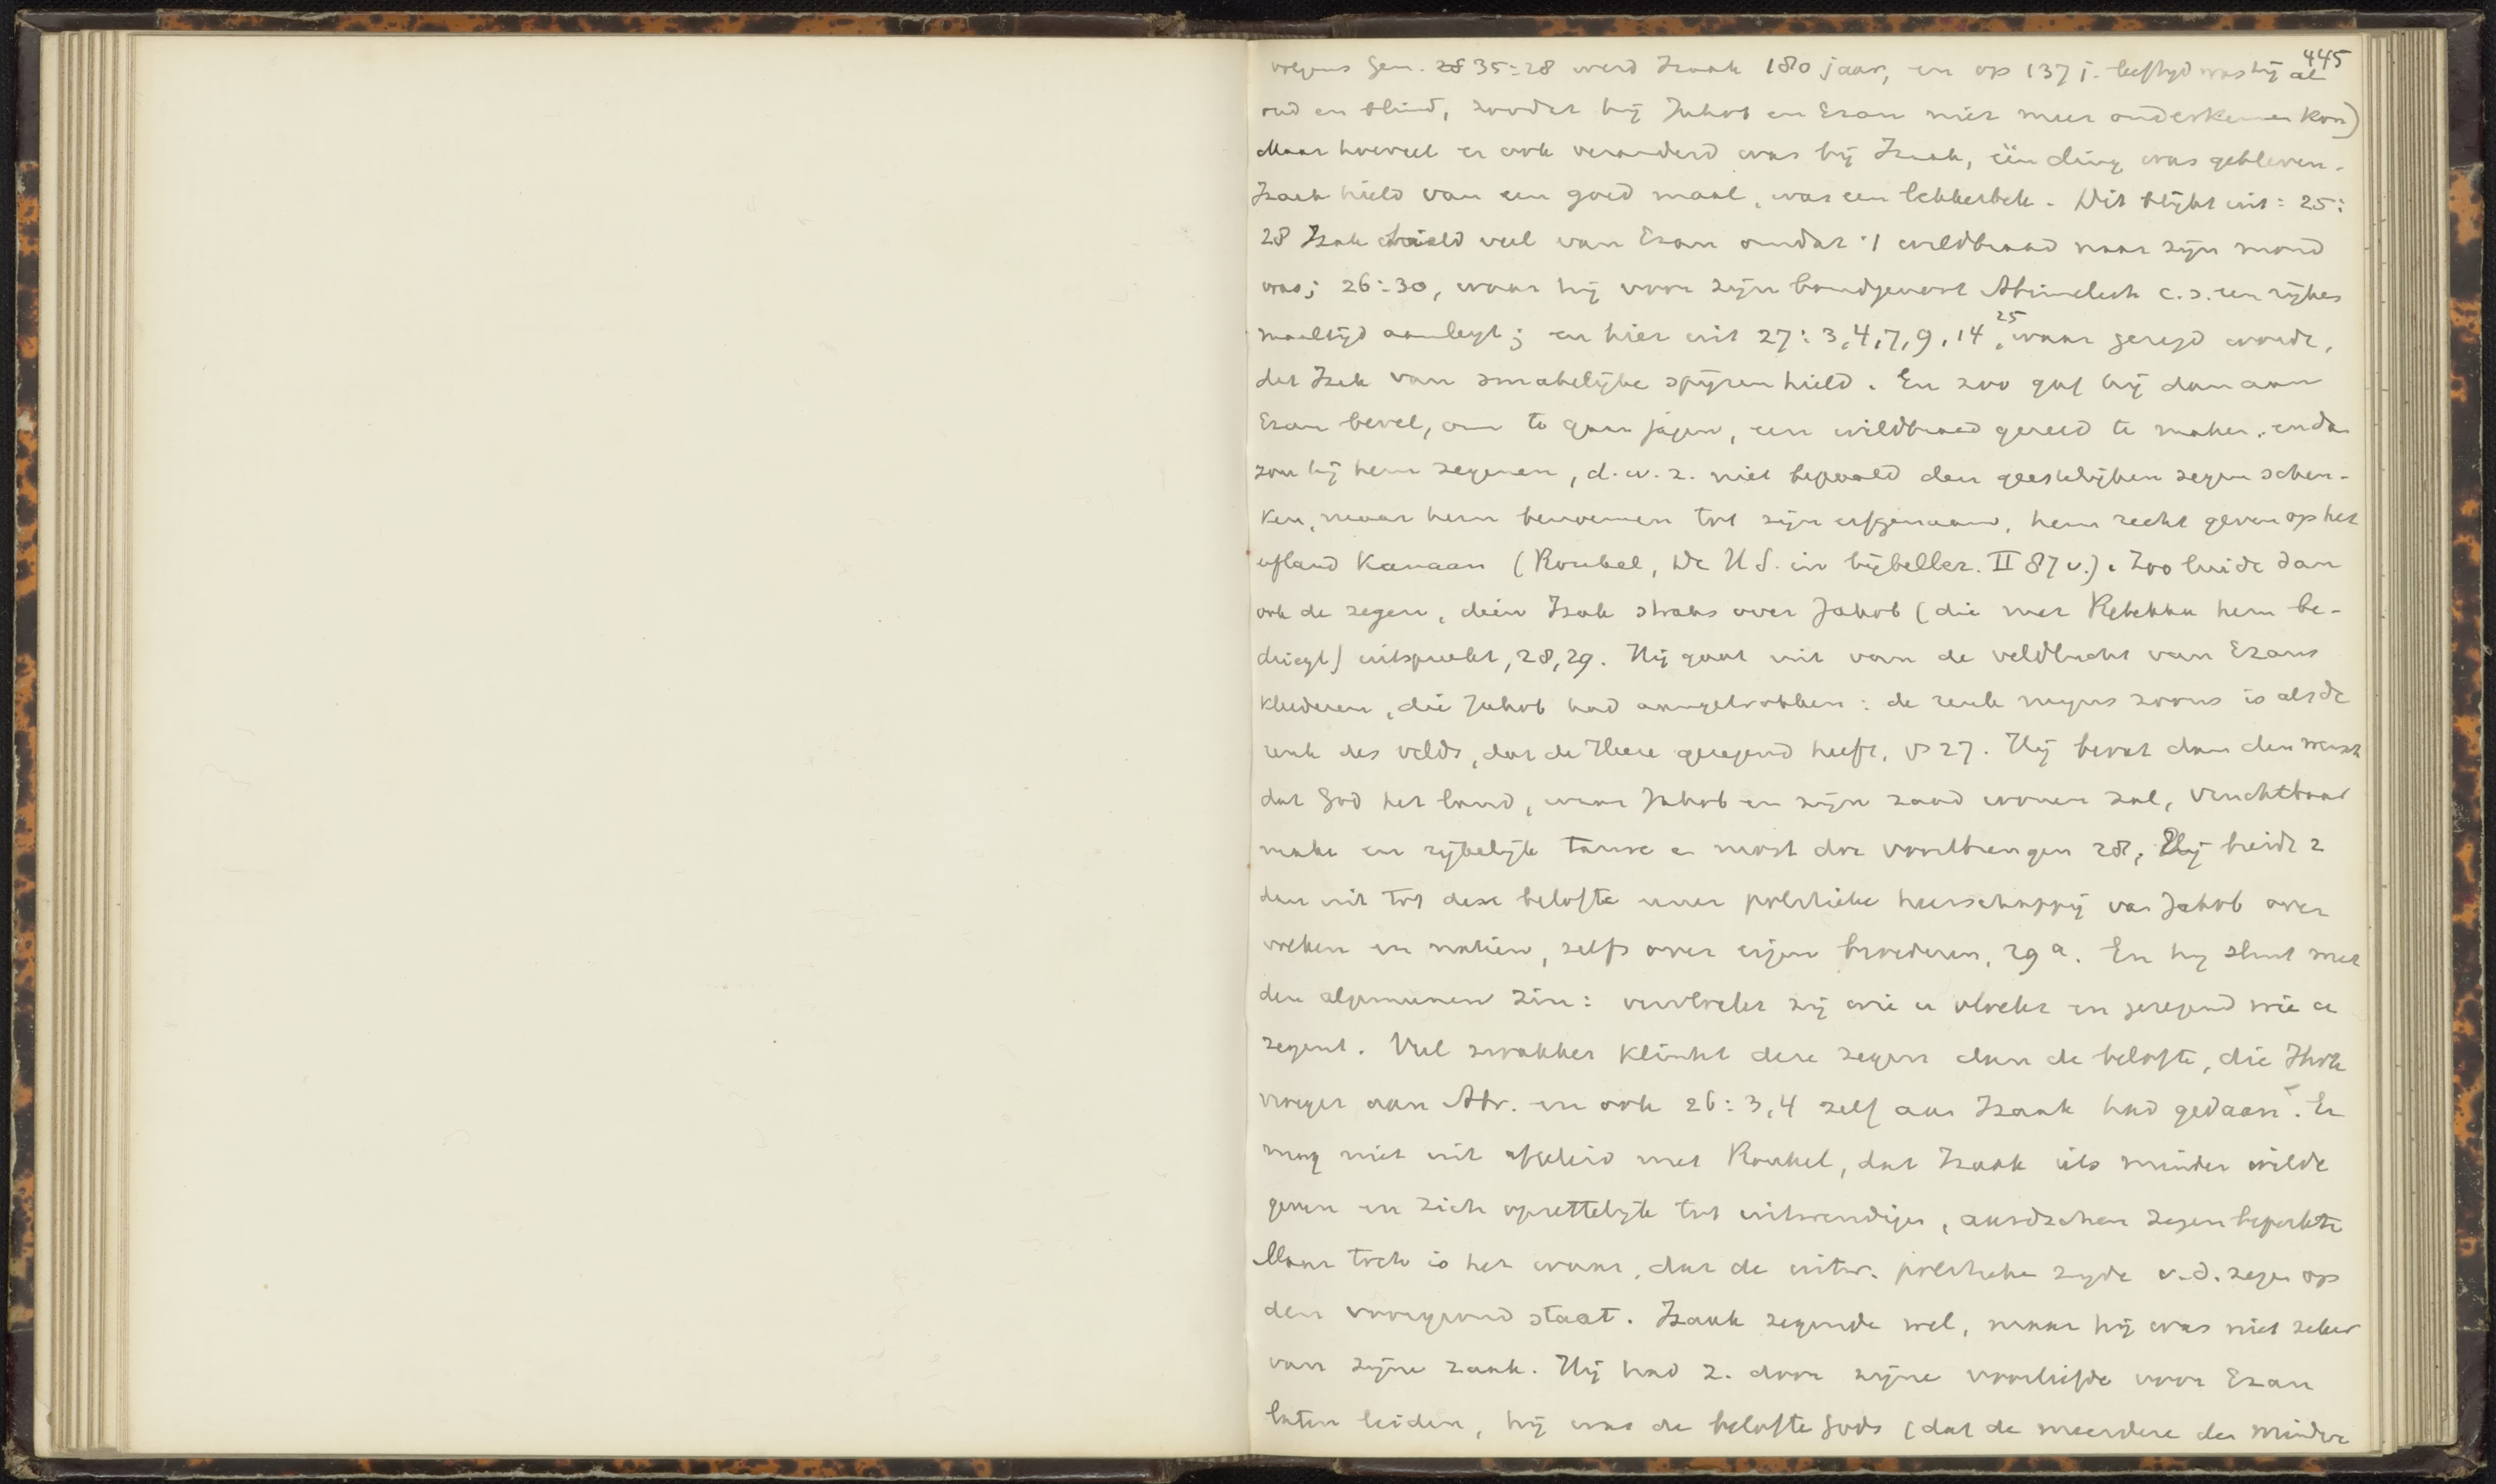 445
volgens Gen. 28 35:28 werd Izaak 180 jaar, en op 137 j. leeftijd was hij al
oud en blind, zoodat hij Jakob en Ezau niet meer onderkennen kon)
Maar hoeveel er ook veranderd was bij Izaak, één ding was gebleven.
Izaak hield van een goed maal, was een lekkerbek. Dit blijkt uit: 25:
28 Izak hield veel van Ezau omdat 't wildbraad naar zijn mond
was; 26:30, waar hij voor zijn bondgenoot Abimelech c.s. een rijkes
maaltijd aanlegt; en hier uit 27: 3,4,7,9,14,25 waar gezegd wordt,
dat Izak van smakelijke spijzen hield. En zoo gaf hij dan aan
Ezau bevel, om te gaan jagen, een wildbraad gereed te maken, en dan
zou hij hem zegenen, d.w.z. niet bepaald den geestelijken zegen schen-
ken, maar hem benoemen tot zijn erfgenaam, hem recht geven op het
erfland Kanaan (Roubel, De H S. in bijbellez. II 87 v.). Zoo luidt dan
ook de zegen, dien Izak straks over Jakob (die met Rebekka hem be-
driegt) uitspreekt, 28,29. Hij gaat uit van de veldlucht van Ezaus
kleederen, die Jakob had aangetrokken: de reuk mijns zoons is als de
reuk des velds, dat de Heere gezegend heeft, vs 27. Hij bevat dan den wensch
dat God het land, waar Jakob en zijn zaad wonen zal, vruchtbaar
make en rijkelijk tarwe en most doe voortbrengen 28; Hij breidt z
dan uit tot deze belofte eener politieke heerschappij van Jakob over
volken en natiën, zelfs over eigen broederen, 29 a. En hij sluit met
den algemeenen zin: vervloekt zij wie u vloekt en gezegend wie u
zegent. Veel zwakker klinkt deze zegen dan de belofte, die Jhvh
vroeger aan Abr. en ook 26: 3,4 zelf aan Izaak had gedaan. Er
mag niet uit afgeleid met Roubel, dat Izaak iets minder wilde
geven en zich opzettelijk tot uitwendigen, aardschen zegen beperkte
Maar toch is het waar, dat de uitw. politieke zijde v.d. zegen op
den voorgrond staat. Izaak zegende wel, maar hij was niet zeker
van zijne zaak. Hij had z. door zijne voorliefde voor Ezau
laten leiden, hij was de belofte Gods (dat de meerdere den mindere